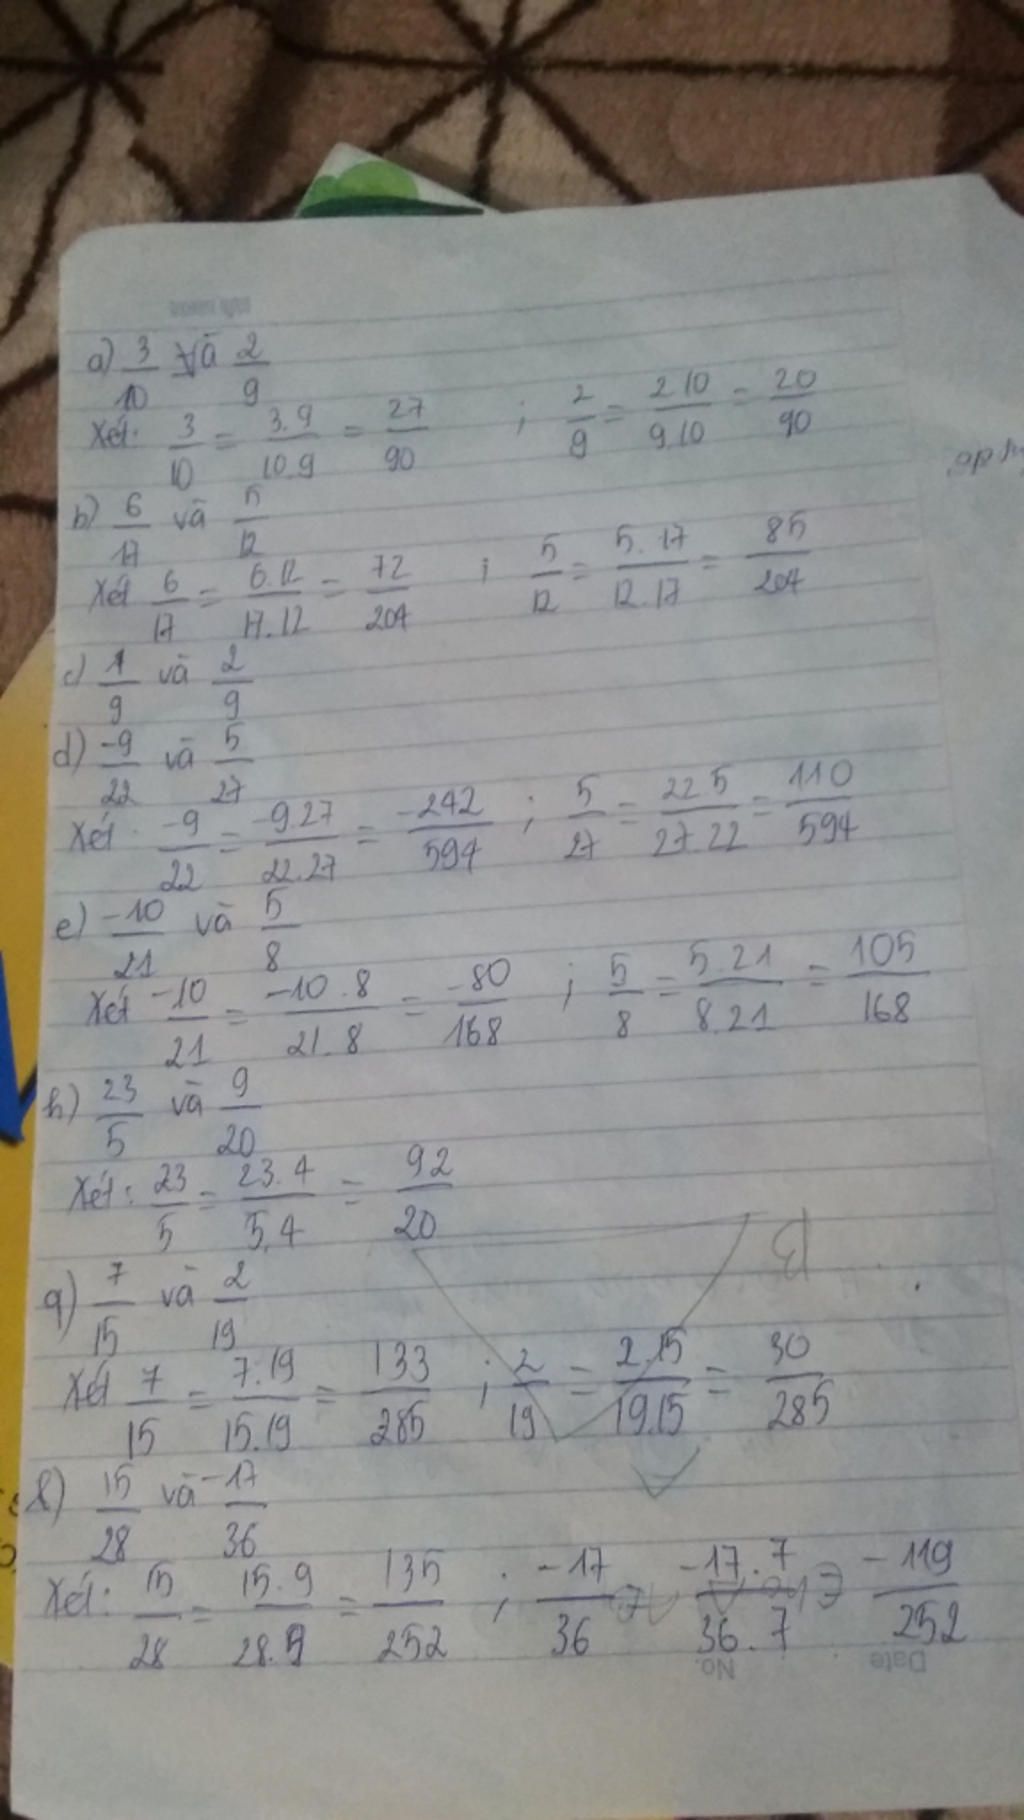 a) 3/10 và 2/9
Xét: 3/10 = 3.9/10.9 = 27/90 ; 2/9 = 2.10/9.10 = 20/90
b) 6/17 và 5/12
Xét 6/17 = 6.12/17.12 = 72/204 ; 5/12 = 5.17/12.17 = 85/204
c) 1/9 và 2/9
d) -9/22 và 5/27
Xét: -9/22 = -9.27/22.27 = -242/594 ; 5/27 = 22.5/27.22 = 110/594
e) -10/21 và 5/8
Xét -10/21 = -10.8/21.8 = -80/168 ; 5/8 = 5.21/8.21 = 105/168
h) 23/5 và 9/20
Xét: 23/5 = 23.4/5.4 = 92/20
g) 7/15 và 2/19
Xét 7/15 = 7.19/15.19 = 133/285 ; 2/19 = 2.15/19.15 = 30/285
l) 15/28 và -17/36
Xét: 15/28 = 15.9/28.9 = 135/252 ; -17/36 = -17.7/36.7 = -119/252
No. Date